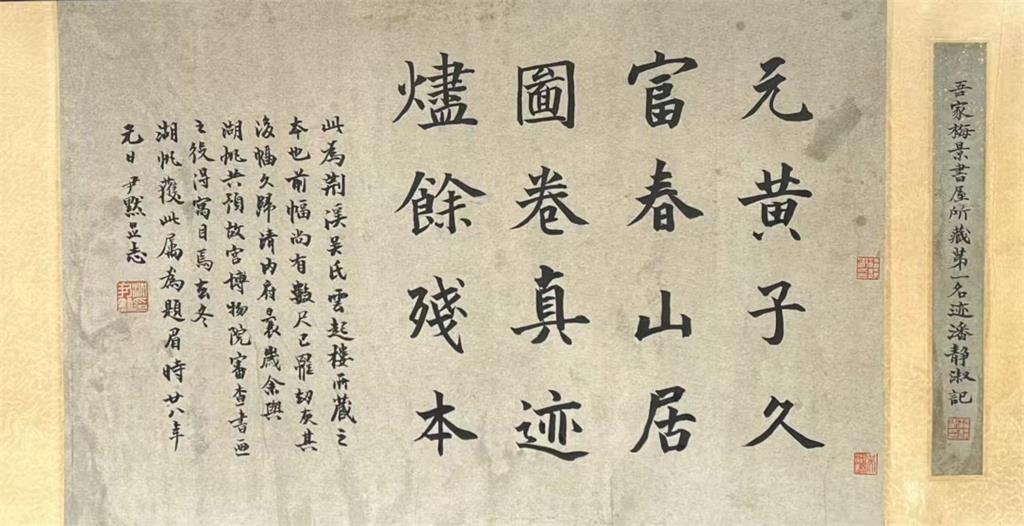 吾家梅景書屋所藏第一名迹潘静淑記
元黄子久
富春山居
圖卷真迹
燼餘殘本
此為荆溪吴氏雲起樓所藏之
本也前幅尚有數尺已罹劫灰其
後幅久歸清内府曩歲余與
湖帆共預故宫博物院審查書画
之役得寓目焉玄冬
湖帆獲此属為題眉時廿八年
元日尹默並志